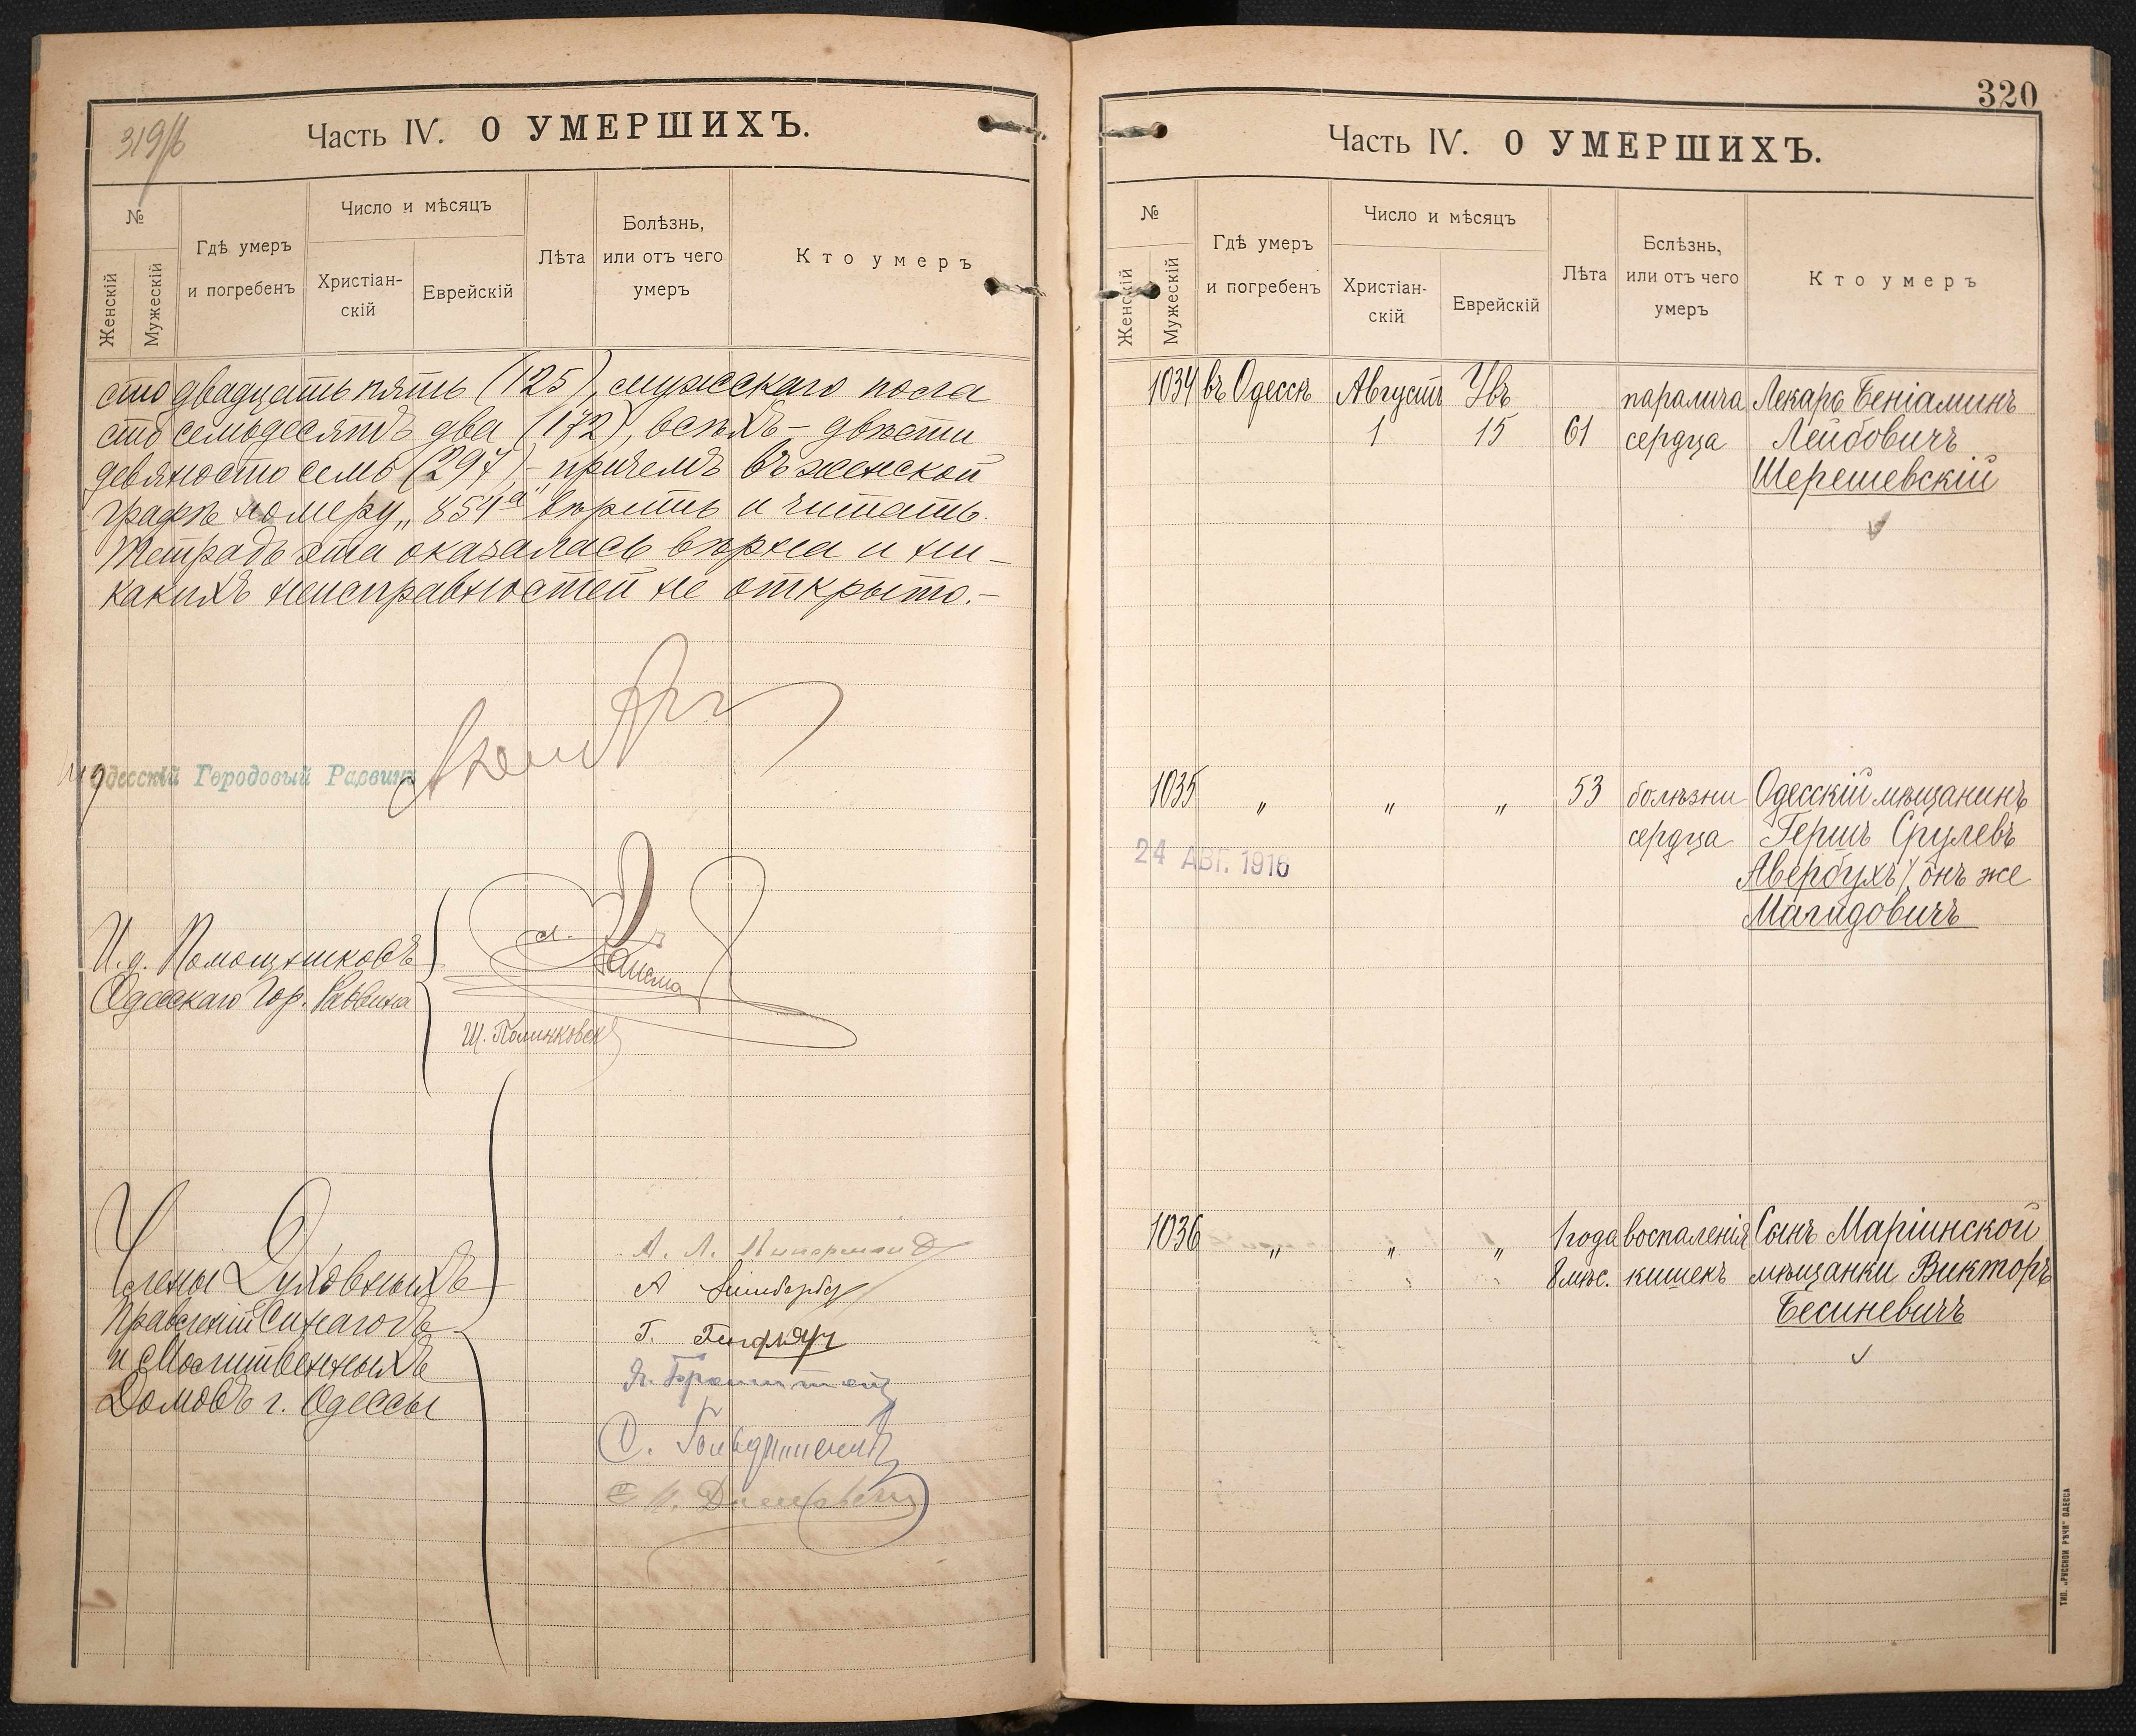 319/б
Часть IV. О УМЕРШИХЪ.
№
Женскій
Мужескій
Гдѣ умеръ
и погребенъ
Число и мѣсяцъ
Христіан-
скій
Еврейскій
Лѣта
Болѣзнь,
или отъ чего
умеръ
Кто умеръ
сто двадцать пять (125), мужескаго пола
сто семьдесятъ два (172), всѣхъ – двѣсти
девяносто семь (297), – причемъ въ женской
графѣ номеру „854а" вѣрить и читать.
Тетрадь эта оказалась вѣрна и ни-
какихъ неисправностей не открыто.–
Одесскій Городовый Раввинъ
И.д. Помощниковъ
Одесскаго Гор. Раввина
Члены Духовныхъ
Правленій Синагогъ
и Молитвенныхъ
Домовъ г. Одессы
320
Часть IV. О УМЕРШИХЪ.
№
Женскій
Мужескій
Гдѣ умеръ
и погребенъ
Число и мѣсяцъ
Христіан-
скій
Еврейскій
Лѣта
Бслѣзнь,
или отъ чего
умеръ
Кто умеръ
1034 въ Одессѣ Августъ Увъ паралича Лекарь Беніаминъ
1 15 61 сердца Лейбовичъ
Шерешевскій
1035 „ „ „ 53 болѣзни Одесскій мѣщанинъ
сердца Гершъ Срулевъ
24 АВГ. 1916
Авербухъ, онъ же
Магидовичъ
1036 „ „ „ 1 года воспаленія Сынъ Маріинской
8 мѣс. кишекъ мѣщанки Викторъ
Бесиневичъ
ТИП. „РУССКОЙ РѢЧИ" ОДЕССА